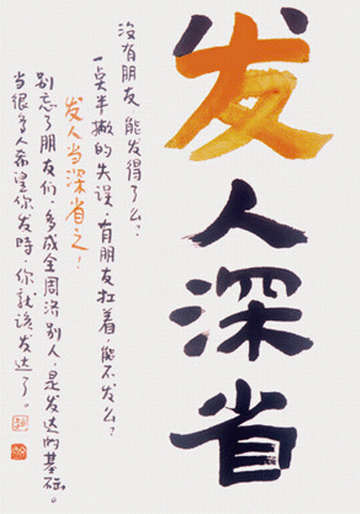 发人深省
没有朋友 能发得了么?
一点半撇的失误,有朋友扛着,能不发么?
发人当深省之!
别忘了朋友们,多成全周济别人,是发达的基础。
当很多人希望你发时,你就该发达了。